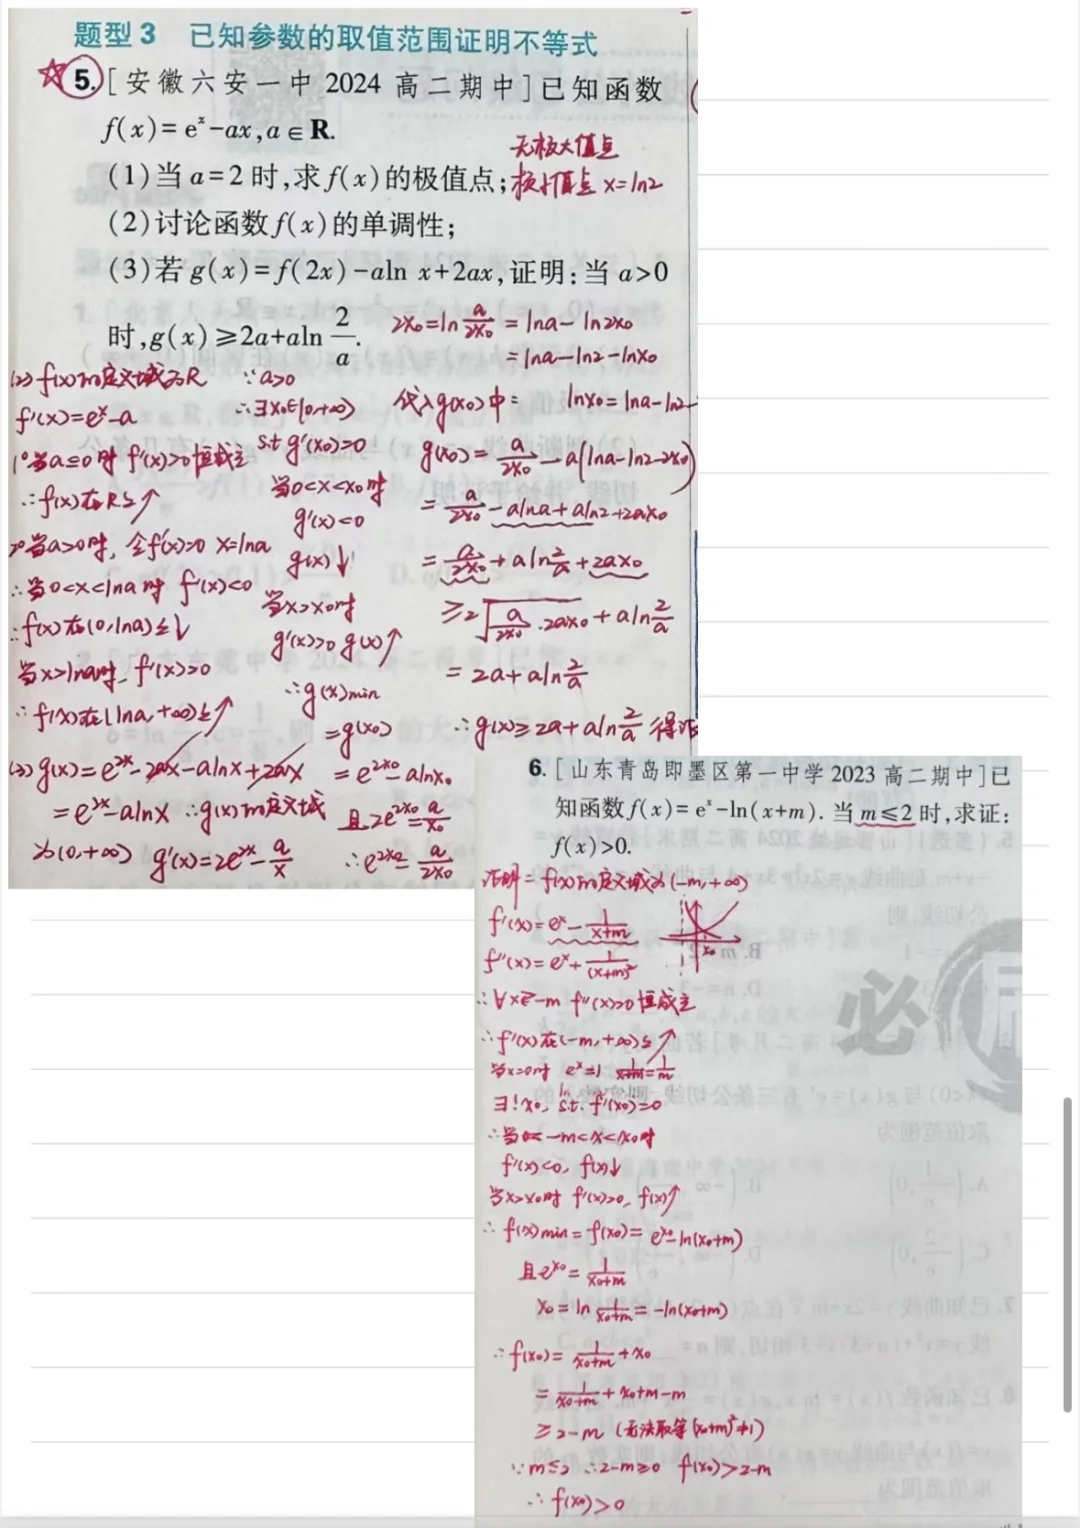 题型3 已知参数的取值范围证明不等式
5.[安徽六安一中 2024 高二期中]已知函数
f(x)=eˣ-ax,a∈R.
无极大值点
(1)当 a=2 时,求 f(x)的极值点;极小值点 x=ln2
(2)讨论函数 f(x)的单调性;
(3)若 g(x)=f(2x)-aln x+2ax,证明:当 a>0
时,g(x)≥2a+aln 2/a.
(2) f(x)的定义域为R
f'(x)=eˣ-a
1°当a≤0时 f'(x)>0恒成立
∴f(x)在R上↗
2°当a>0时, 令f'(x)=0 x=lna
∴当0<x<lna时 f'(x)<0
∴f(x)在(0,lna)上↓
当x>lna时, f'(x)>0
∴f(x)在(lna,+∞)上↗
(3) g(x)=e²ˣ-2ax-alnx+2ax
=e²ˣ-alnx ∴g(x)的定义域
为(0,+∞) g'(x)=2e²ˣ-a/x
∵a>0
∴∃x₀∈(0,+∞)
s.t g'(x₀)=0
当0<x<x₀时
g'(x)<0
g(x)↓
当x>x₀时
g'(x)>0 g(x)↑
∴g(x)min
=g(x₀)
=e²ˣ⁰-alnx₀
且2e²ˣ⁰=a/x₀
∴e²ˣ⁰=a/2x₀
2x₀=ln a/2x₀ =lna-ln2x₀
=lna-ln2-lnx₀
代入g(x₀)中: lnx₀=lna-ln2-
g(x₀)=a/2x₀-a(lna-ln2-2x₀)
=a/2x₀-alna+aln2+2ax₀
=a/2x₀+aln2/a+2ax₀
≥2√(a/2x₀·2ax₀)+aln2/a
=2a+aln2/a
∴g(x)≥2a+aln2/a 得证
6.[山东青岛即墨区第一中学 2023 高二期中]已
知函数 f(x)=eˣ-ln(x+m). 当 m≤2 时,求证:
f(x)>0.
证明: f(x)的定义域为(-m,+∞)
f'(x)=eˣ-1/(x+m)
x₀
f''(x)=eˣ+1/(x+m)²
∴∀x>-m f''(x)>0恒成立
∴f'(x)在(-m,+∞)上↗
当x=0时 eˣ=1 1/(x+m)=1/m
∃!x₀, s.t. f'(x₀)=0
∴当-m<x<x₀时
f'(x)<0, f(x)↓
当x>x₀时 f'(x)>0, f(x)↑
∴f(x)min=f(x₀)=eˣ⁰-ln(x₀+m)
且eˣ⁰=1/(x₀+m)
x₀=ln 1/(x₀+m)=-ln(x₀+m)
∴f(x₀)=1/(x₀+m)+x₀
=1/(x₀+m)+x₀+m-m
≥2-m (无法取等(x₀+m)²≠1)
∵m≤2 ∴2-m≥0 f(x₀)>2-m
∴f(x₀)>0
必